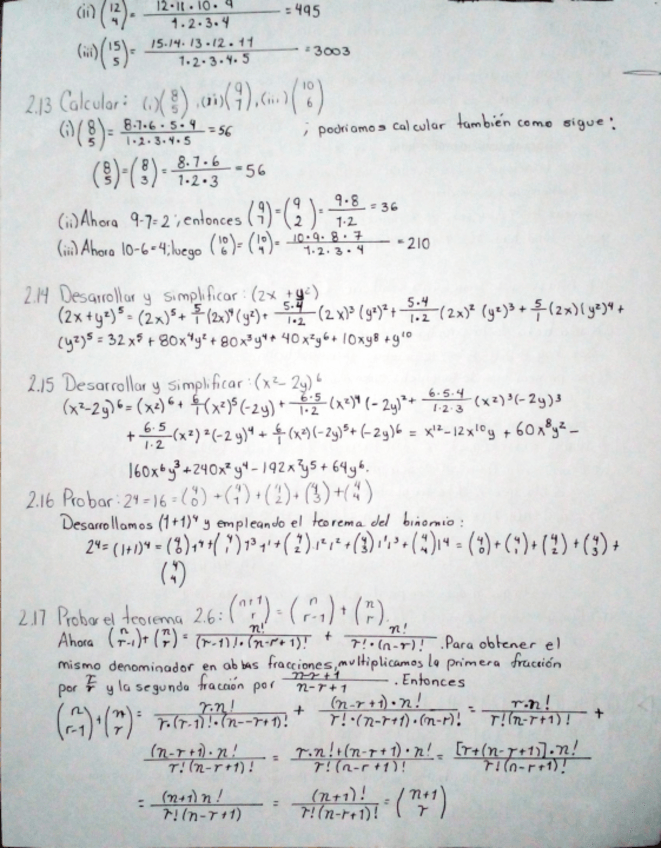 (ii) (12 4) = 12·11·10·9 / 1·2·3·4 = 495
(iii) (15 5) = 15·14·13·12·11 / 1·2·3·4·5 = 3003
2.13 Calcular: (i) (8 5), (ii) (9 7), (iii) (10 6)
(i) (8 5) = 8·7·6·5·4 / 1·2·3·4·5 = 56 ; podriamos calcular también como sigue:
(8 5) = (8 3) = 8·7·6 / 1·2·3 = 56
(ii) Ahora 9-7=2; entonces (9 7) = (9 2) = 9·8 / 1·2 = 36
(iii) Ahora 10-6=4; luego (10 6) = (10 4) = 10·9·8·7 / 1·2·3·4 = 210
2.14 Desarrollar y simplificar: (2x + y²)
(2x+y²)⁵ = (2x)⁵ + 5/1 (2x)⁴(y²) + 5·4/1·2 (2x)³(y²)² + 5·4/1·2 (2x)² (y²)³ + 5/1 (2x)(y²)⁴ +
(y²)⁵ = 32x⁵ + 80x⁴y² + 80x³y⁴ + 40x²y⁶ + 10xy⁸ + y¹⁰
2.15 Desarrollar y simplificar: (x² - 2y)⁶
(x²-2y)⁶ = (x²)⁶ + 6/1 (x²)⁵(-2y) + 6·5/1·2 (x²)⁴(-2y)² + 6·5·4/1·2·3 (x²)³(-2y)³
+ 6·5/1·2 (x²)²(-2y)⁴ + 6/1 (x²)(-2y)⁵ + (-2y)⁶ = x¹² - 12x¹⁰y + 60x⁸y² -
160x⁶y³ + 240x²y⁴ - 192x²y⁵ + 64y⁶.
2.16 Probar: 2⁴ = 16 = (4 0) + (4 1) + (4 2) + (4 3) + (4 4)
Desarrollamos (1+1)⁴ y empleando el teorema del binomio:
2⁴ = (1+1)⁴ = (4 0) 1⁴ + (4 1) 1³ 1¹ + (4 2) 1² 1² + (4 3) 1¹ 1³ + (4 4) 1⁴ = (4 0) + (4 1) + (4 2) + (4 3) +
(4 4)
2.17 Probar el teorema 2.6: (n+1 r) = (n r-1) + (n r).
Ahora (n r-1) + (n r) = n! / (r-1)!·(n-r+1)! + n! / r!·(n-r)! . Para obtener el
mismo denominador en abbas fracciones, multiplicamos la primera fracción
por r/r y la segunda fracción por n-r+1 / n-r+1 . Entonces
(n r-1) + (n r) = r·n! / r·(r-1)!·(n-r+1)! + (n-r+1)·n! / r!·(n-r+1)·(n-r)! = r·n! / r!(n-r+1)! +
(n-r+1)·n! / r!(n-r+1)! = r·n!+(n-r+1)·n! / r!(n-r+1)! = [r+(n-r+1)]·n! / r!(n-r+1)!
= (n+1)n! / r!(n-r+1) = (n+1)! / r!(n-r+1)! = (n+1 r)